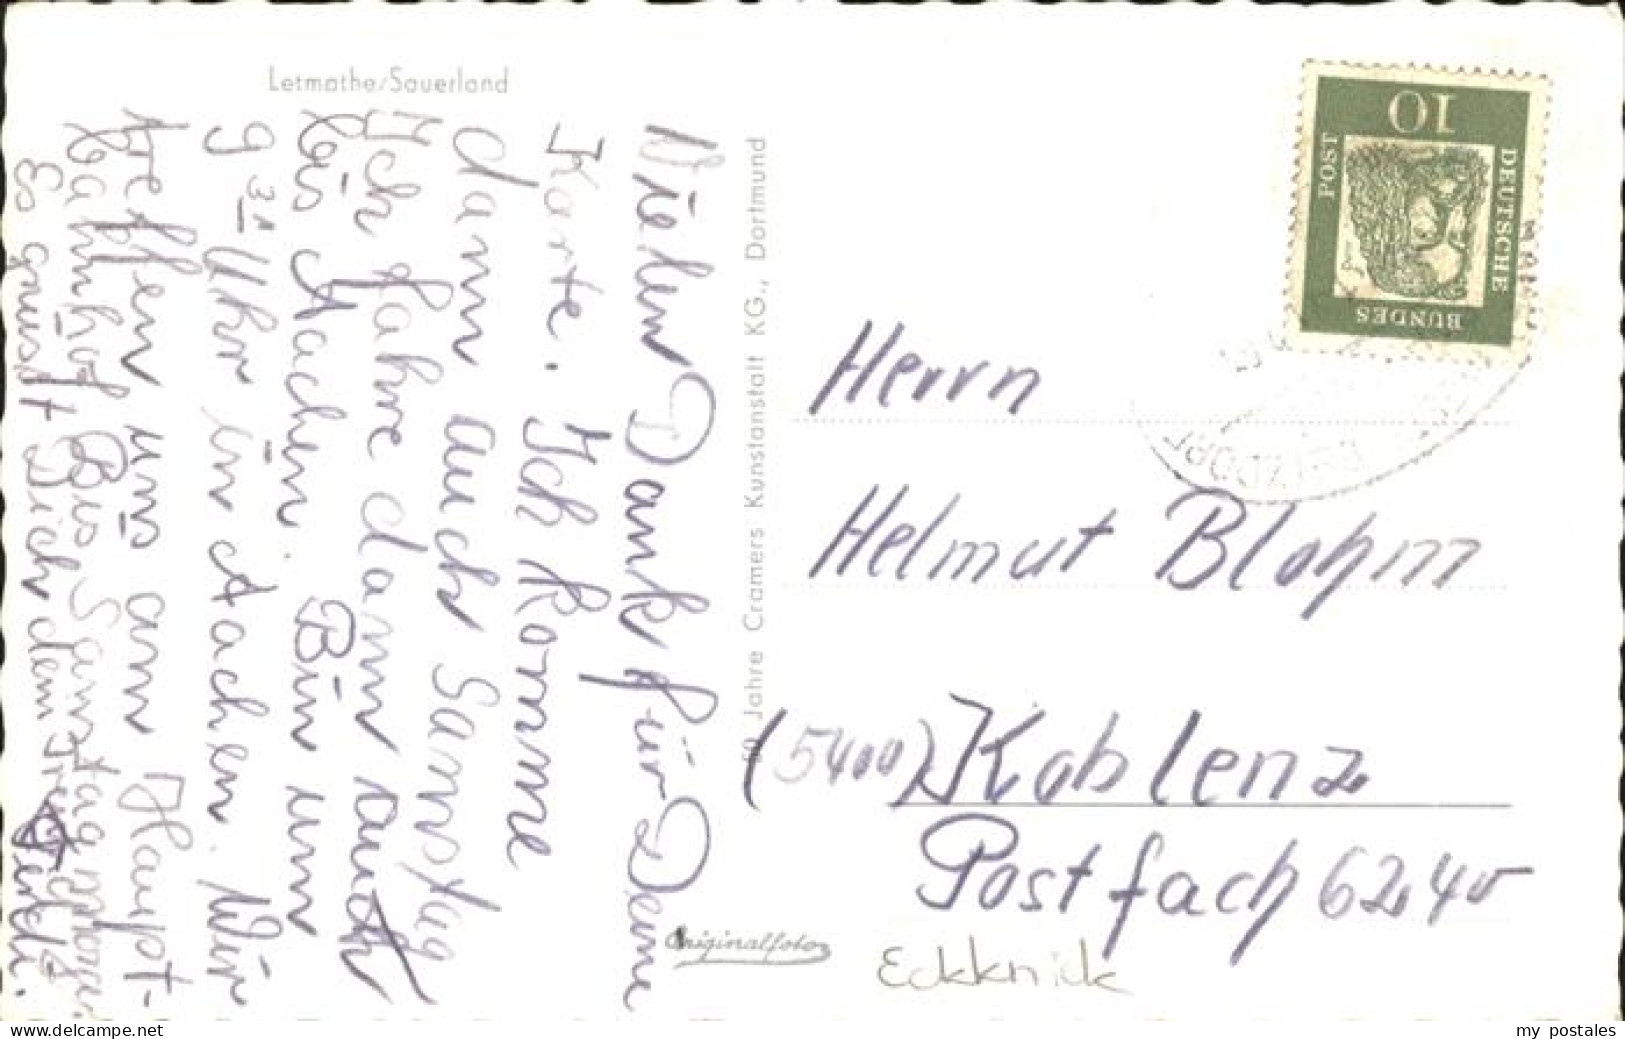 Letmathe/Sauerland
Vielen Dank für Deine
Karte. Ich komme
dann auch Samstag
Ich fahre dann auch
bis Aachen. Bin um
9 31 Uhr in Aachen. Wir
treffen uns am Haupt-
bahnhof Bis Samstag morgen
Es grüsst Dich dein
60 Jahre Cramers Kunstanstalt KG., Dortmund
Originalfoto
DEUTSCHE
BUNDES
POST
10
Herrn
Helmut Blohm
(5400) Koblenz
Postfach 6240
Eckknick
www.delcampe.net
my postales